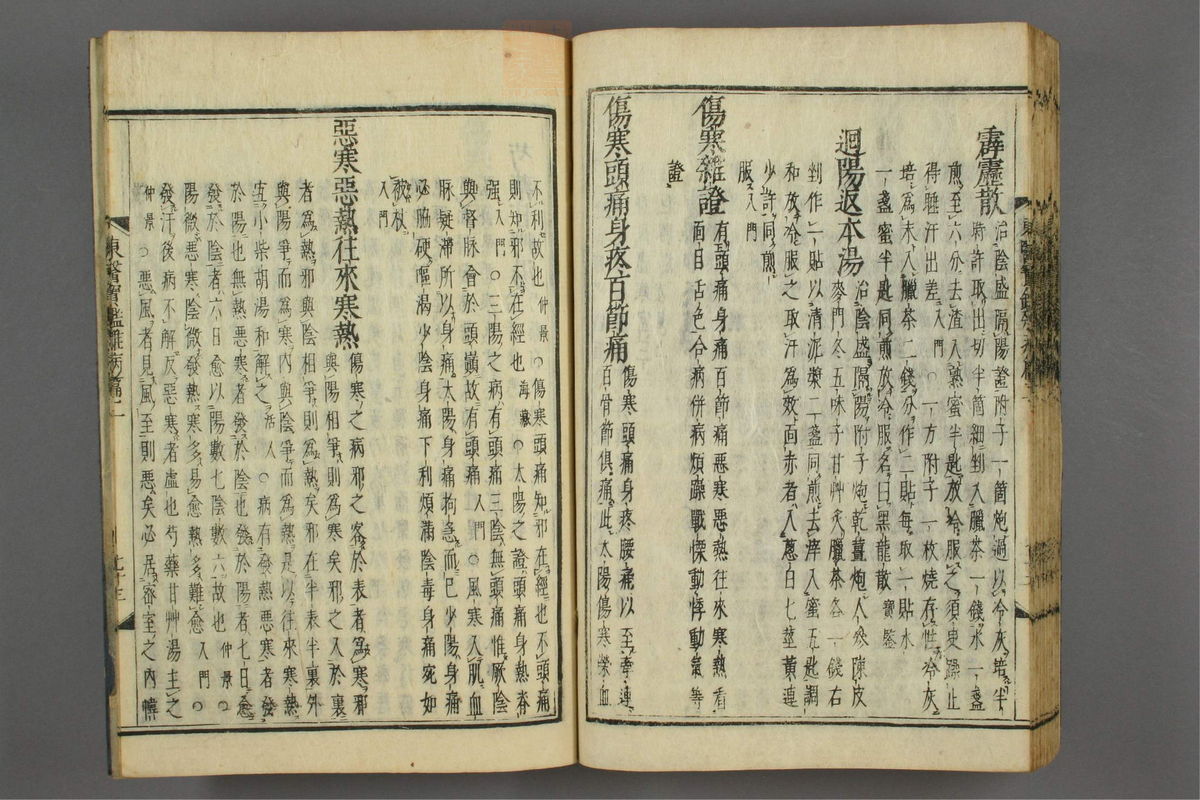 霹靂散 治陰盛隔陽證附子一箇炮過以冷灰培半
時許取出切半箇細剉入臘茶一錢水一盞
煎至六分去渣入熟蜜半匙放冷服之須臾躁止
得睡汗出差入門○一方附子一枚燒存性冷灰
培爲末入臘茶二錢分作二貼每取一貼水
一盞蜜半匙同煎放冷服名曰黑龍散寶鑑
迴陽返本湯 治陰盛隔陽附子炮乾薑炮人參陳皮
麥門冬五味子甘艸灸臘茶各一錢右
剉作一貼以清泥漿二盞同煎去滓入蜜五匙調
和放冷服之取汗爲效面赤者入葱白七莖黃連
少許同煎
服入門
傷寒雜證 有頭痛身痛百節痛惡寒惡熱往來寒熱看
面目舌色合病併病煩躁戰慄動悸動氣等
證
傷寒頭痛身疼百節痛 傷寒頭痛身疼腰痛以至牽連
百骨節俱痛此太陽傷寒榮血
不利故也仲景○傷寒頭痛知邪在經也不頭痛
則知邪不在經也海藏○太陽之證頭痛身熱脊
強入門○三陽之病有頭痛三陰無頭痛惟厥陰
與督脉會於頭巓故有頭痛入門○風寒入肌血
脉凝滯所以身痛太陽身痛拘急而已少陽身痛
必脇硬嘔渴少陰身痛下利煩滿陰毒身痛宛如
被杖
入門
惡寒惡熱往來寒熱 傷寒之病邪之客於表者爲寒邪
與陽相爭則爲寒矣邪之入於裏
者爲熱邪與陰相爭則爲熱矣邪在半表半裏外
與陽爭而爲寒內與陰爭而爲熱是以往來寒熱
宜小柴胡湯和解之活人○病有發熱惡寒者發
於陽也無熱惡寒者發於陰也發於陽者七日愈
發於陰者六日愈以陽數七陰數六故也仲景○
陽微惡寒陰微發熱寒多易愈熱多難愈入門○
發汗後病不解反惡寒者虛也芍藥甘艸湯主之
仲景○惡風者見風至則惡矣必居密室之內幃
東醫寶鑑雜病篇二
九十三